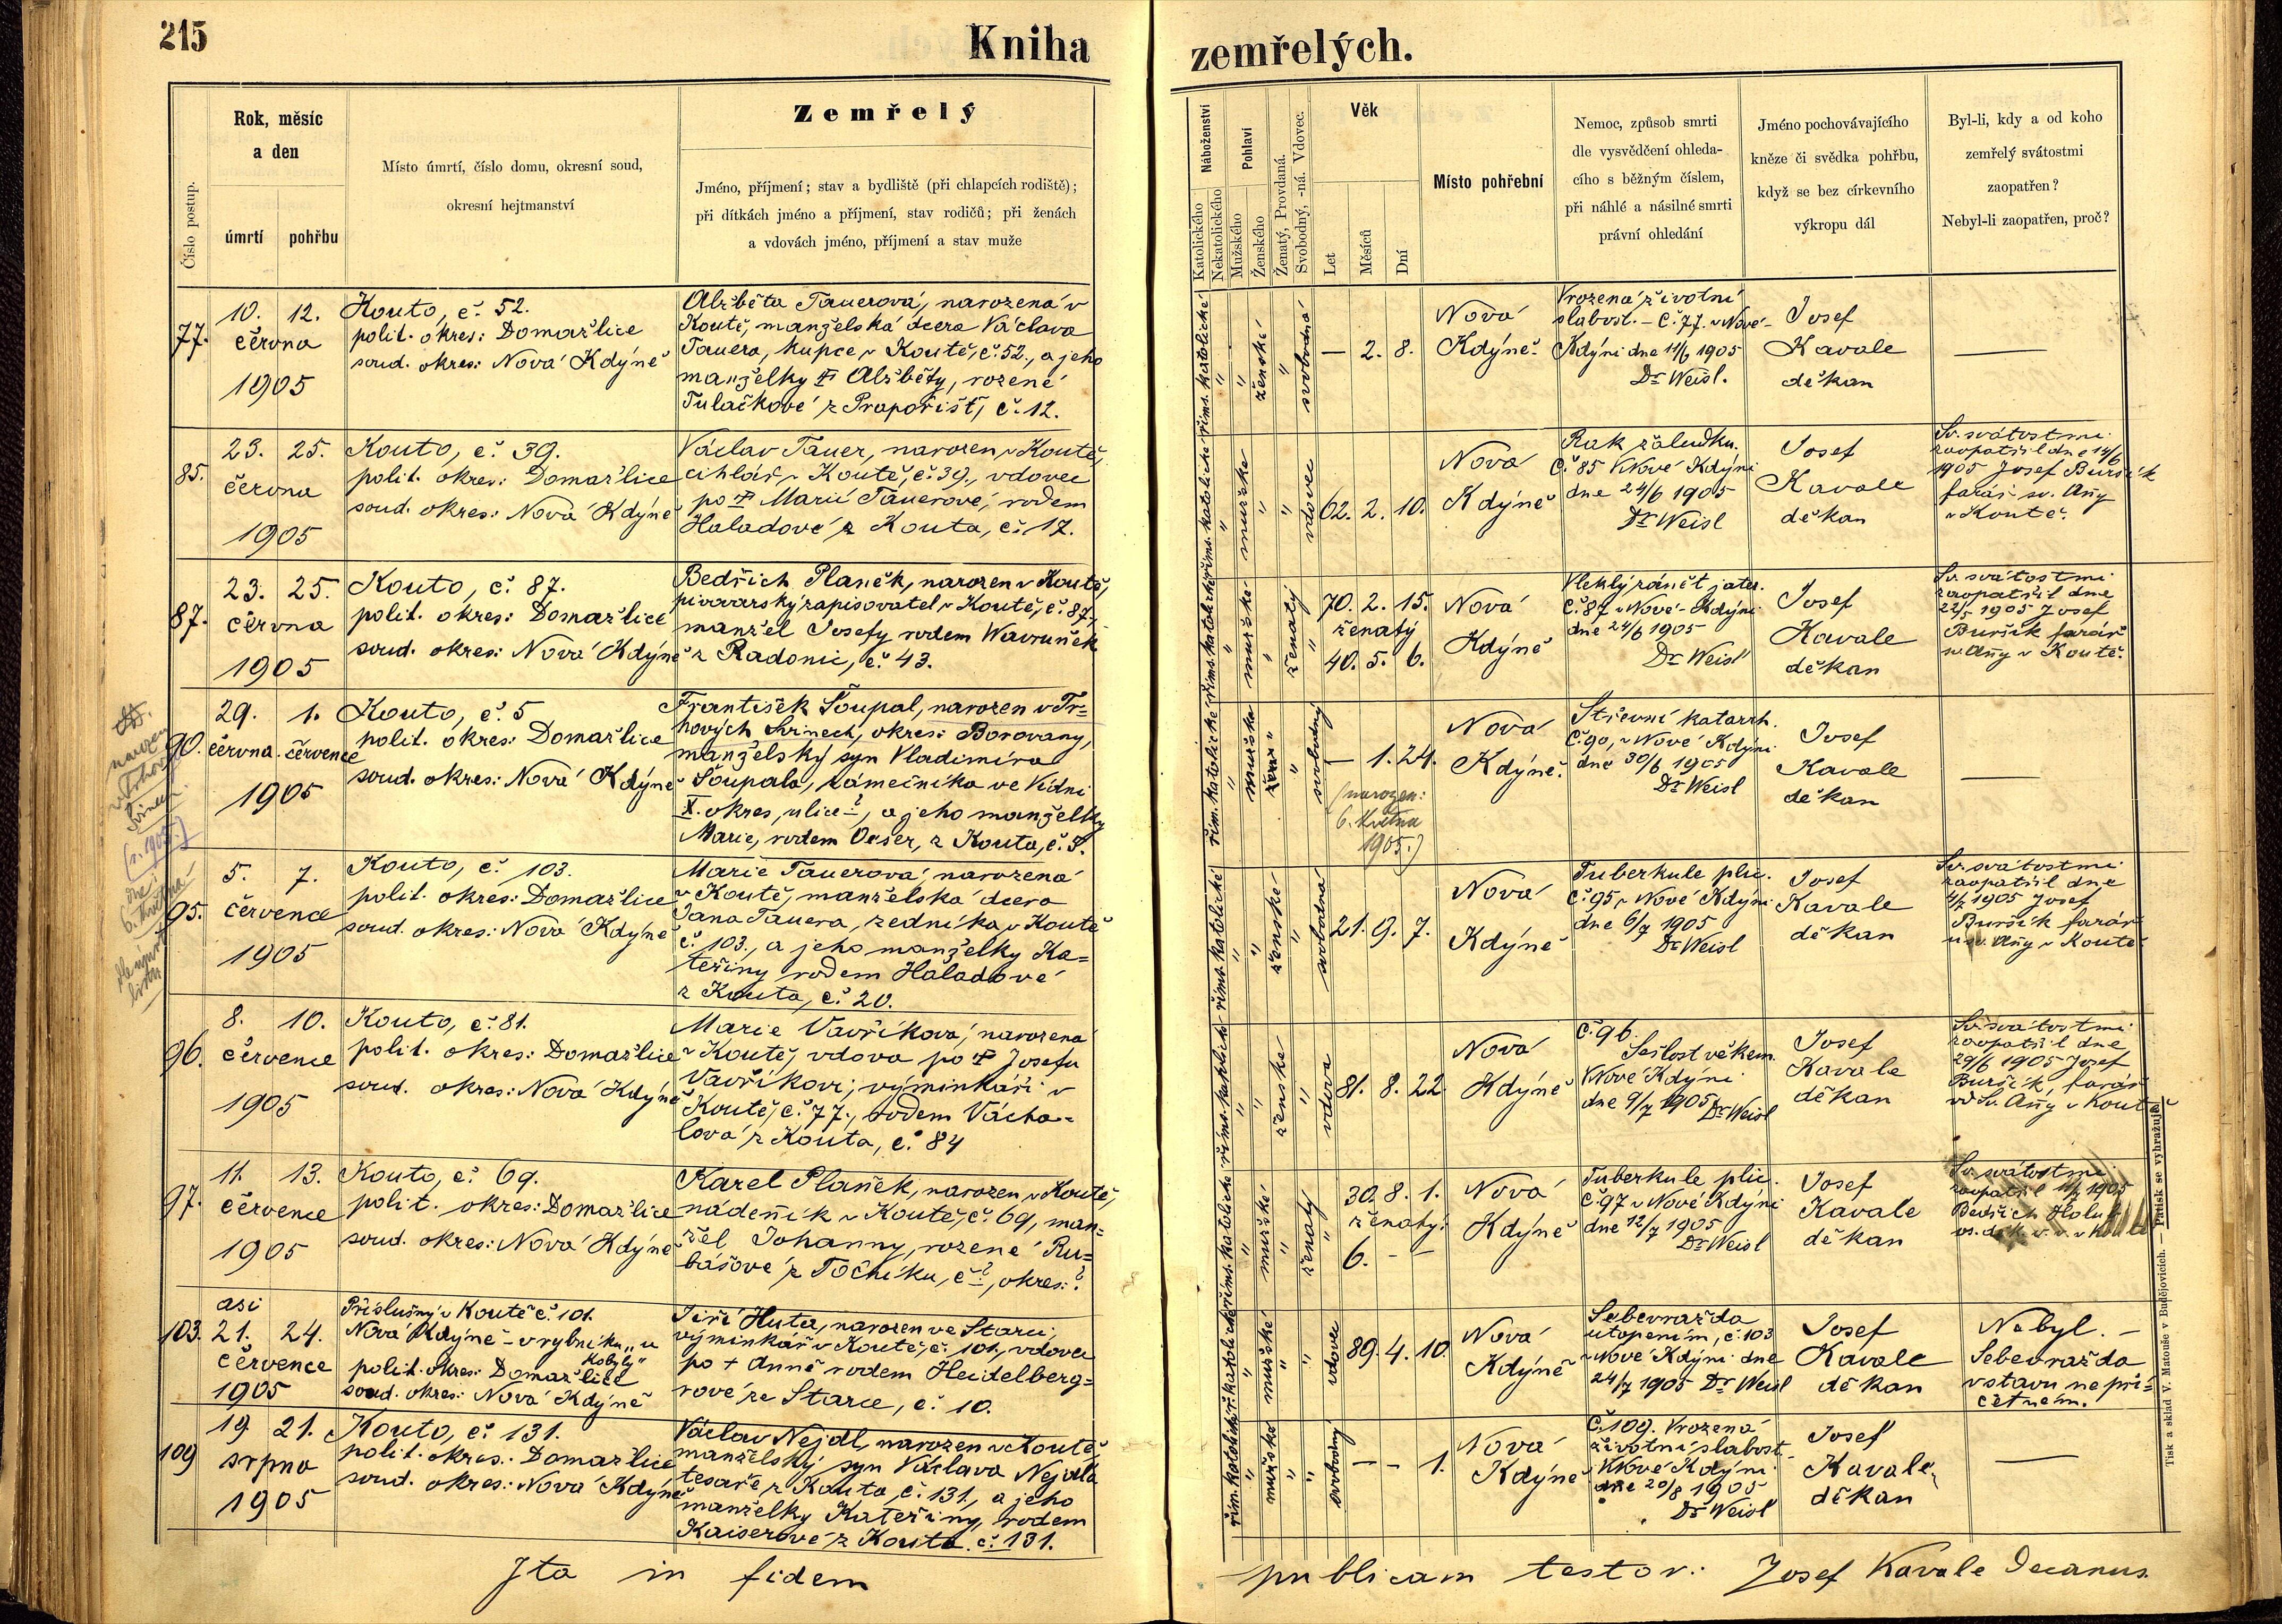 215
Kniha
zemřelých.
Číslo postup.
Rok, měsíc
a den
úmrtí
pohřbu
Místo úmrtí, číslo domu, okresní soud,
okresní hejtmanství
Zemřelý
Jméno, příjmení; stav a bydliště (při chlapcích rodiště);
při dítkách jméno a příjmení, stav rodičů; při ženách
a vdovách jméno, příjmení a stav muže
Náboženství
Katolického
Nekatolického
Pohlaví
Mužského
Ženského
Ženatý, Provdaná.
Svobodný, -ná. Vdovec.
Věk
Let
Měsíců
Dní
Místo pohřební
Nemoc, způsob smrti
dle vysvědčení ohleda-
cího s běžným číslem,
při náhlé a násilné smrti
právní ohledání
Jméno pochovávajícího
kněze či svědka pohřbu,
když se bez církevního
výkropu dál
Byl-li, kdy a od koho
zemřelý svátostmi
zaopatřen?
Nebyl-li zaopatřen, proč?
77.
10. 12.
června
1905
Kouto, č. 52.
polit. okres: Domažlice
soud. okres: Nová Kdýně
Alžběta Tauerová, narozená v
Koutě, manželská dcera Václava
Tauera, kupce v Koutě, č. 52., a jeho
manželky † Alžběty, rozené
Tulačkové z Prapořišť, č. 12.
řims. katolické
ženské
svobodná
— 2. 8.
Nová
Kdýně.
Vrozená životní
slabost. – č. 77. v Nové-
Kdýni dne 11/6 1905
Dr Weisl.
Josef
Kavale
děkan
—
85.
23. 25.
června
1905
Kouto, č. 39.
polit. okres: Domažlice
soud. okres: Nová Kdýně
Václav Tauer, narozen v Koutě,
cihlář v Koutě, č. 39., vdovec
po † Marii Tauerové, rodem
Haladové z Kouta, č. 17.
řims. katolické
mužské
vdovec
62. 2. 10.
Nová
Kdýně
Rak žaludku.
č. 85 v Nové Kdýni
dne 24/6 1905
Dr Weisl
Josef
Kavale
děkan
Sv. svátostmi
zaopatřil dne 14/6
1905 Josef Buršík
farář sv. Any
v Koutě.
87.
23. 25.
června
1905
Kouto, č. 87.
polit. okres: Domažlice
soud. okres: Nová Kdýně
Bedřich Planěk, narozen v Koutě,
pivovarský zapisovatel v Koutě, č. 87.,
manžel Josefy rodem Wavruněk
z Radonic, č. 43.
řims. katolické
mužské
ženatý
70. 2. 15.
ženatý
40. 5. 6.
Nová
Kdýně
Vleklý zánět jater.
č. 87 v Nové-Kdýni
dne 24/6 1905
Dr Weisl
Josef
Kavale
děkan
Sv. svátostmi
zaopatřil dne
22/5 1905 Josef
Buršík farář
sv. Any v Koutě.
narozen
v Trhov.
Svinech
(r. 1905.)
dne
6. května
90.
29. 1.
června. července
1905
Kouto, č. 5
polit. okres: Domažlice
soud. okres: Nová Kdýně
František Šoupal, narozen v Tr=
hových Svinech, okres: Borovany,
manželský syn Vladimíra
Šoupala, zámečníka ve Vídni
X. okres, ulice ?, a jeho manželky
Marie, rodem Oeser, z Kouta, č. 5.
řím. katolické
mužské
svobodný
— 1. 24.
(narozen:
6. května
1905.)
Nová
Kdýně.
Střevní katarrh.
č. 90, v Nové Kdýni
dne 30/6 1905
Dr Weisl
Josef
Kavale
děkan
—
95.
5. 7.
července
1905
Kouto, č. 103.
polit. okres: Domažlice
soud. okres: Nová Kdýně
Marie Tauerová, narozená
v Koutě, manželská dcera
Jana Tauera, zedníka v Koutě
č. 103., a jeho manželky Ka=
teřiny rodem Haladové
z Kouta, č. 20.
řims. katolické
ženské
svobodná
21. 9. 7.
Nová
Kdýně
Tuberkule plic.
č. 95, v Nové Kdýni
dne 6/7 1905
Dr Weisl
Josef
Kavale
děkan
Sv. svátostmi
zaopatřil dne
4/7 1905 Josef
Buršík farář
u sv. Any v Koutě
96.
8. 10.
července
1905
Kouto, č. 81.
polit. okres: Domažlice
soud. okres: Nová Kdýně
Marie Vavříková, narozená
v Koutě, vdova po † Josefu
Vavříkovi, výminkáři v
Koutě, č. 77., rodem Vácha-
lová z Kouta, č. 84
řims. katolické
ženské
vdova
81. 8. 22
Nová
Kdýně
č. 96.
Sešlost věkem.
v Nové Kdýni
dne 9/7 1905 Dr Weisl
Josef
Kavale
děkan
Sv. svátostmi
zaopatřil dne
29/6 1905 Josef
Buršík, farář
od Sv. Any v Koutě
97.
11. 13.
července
1905
Kouto, č. 69.
polit. okres: Domažlice
soud. okres: Nová Kdýně
Karel Planěk, narozen v Koutě,
nádeník v Koutě, č. 69, man=
žel Johanny, rozené Ru=
bášové z Točníku, č. ?, okres: ?
řims. katolické
mužské
ženatý
30. 8. 1.
ženatý:
6. – –
Nová
Kdýně
Tuberkule plic.
č. 97 v Nové Kdýni
dne 12/7 1905
Dr Weisl
Josef
Kavale
děkan
Sv. svátostmi
zaopatřil 11/7 1905
Bedřich Holub
103.
asi
21. 24.
července
1905
Příslušný v Koutě č. 101.
Nová Kdýně – v rybníku „u
Kobyly"
polit. okres: Domažlice
soud. okres: Nová Kdýně
Jiří Huta, narozen ve Starci,
výminkář v Koutě, č. 101., vdovec
po + Anně rodem Heidelberg=
rové ze Starce, č. 10.
ř. katolické
mužské
vdovec
89. 4. 10.
Nová
Kdýně
Sebevražda
utopením, č. 103
v Nové Kdýni dne
24/7 1905 Dr Weisl
Josef
Kavale
děkan
Nebyl. –
Sebevražda
v stavu nepří=
četném.
109
19. 21.
srpna
1905
Kouto, č. 131.
polit. okres: Domažlice
soud. okres: Nová Kdýně
Václav Nejdl, narozen v Koutě,
manželský syn Václava Nejdla
tesaře, z Kouta, č. 131., a jeho
manželky Kateřiny, rodem
Kaiserové z Kouta č. 131.
řím. katolické
mužské
svobodný
– – 1.
Nová
Kdýně
Č. 109. Vrozená
životní slabost.
v Nové Kdýni
dne 20/8 1905
Dr Weisl
Josef
Kavale,
děkan
—
Ita in fidem
publicam testor: Josef Kavale Decanus.
Tisk a sklad V. Matouše v Budějovicích. — Patisk se vyhražuje.